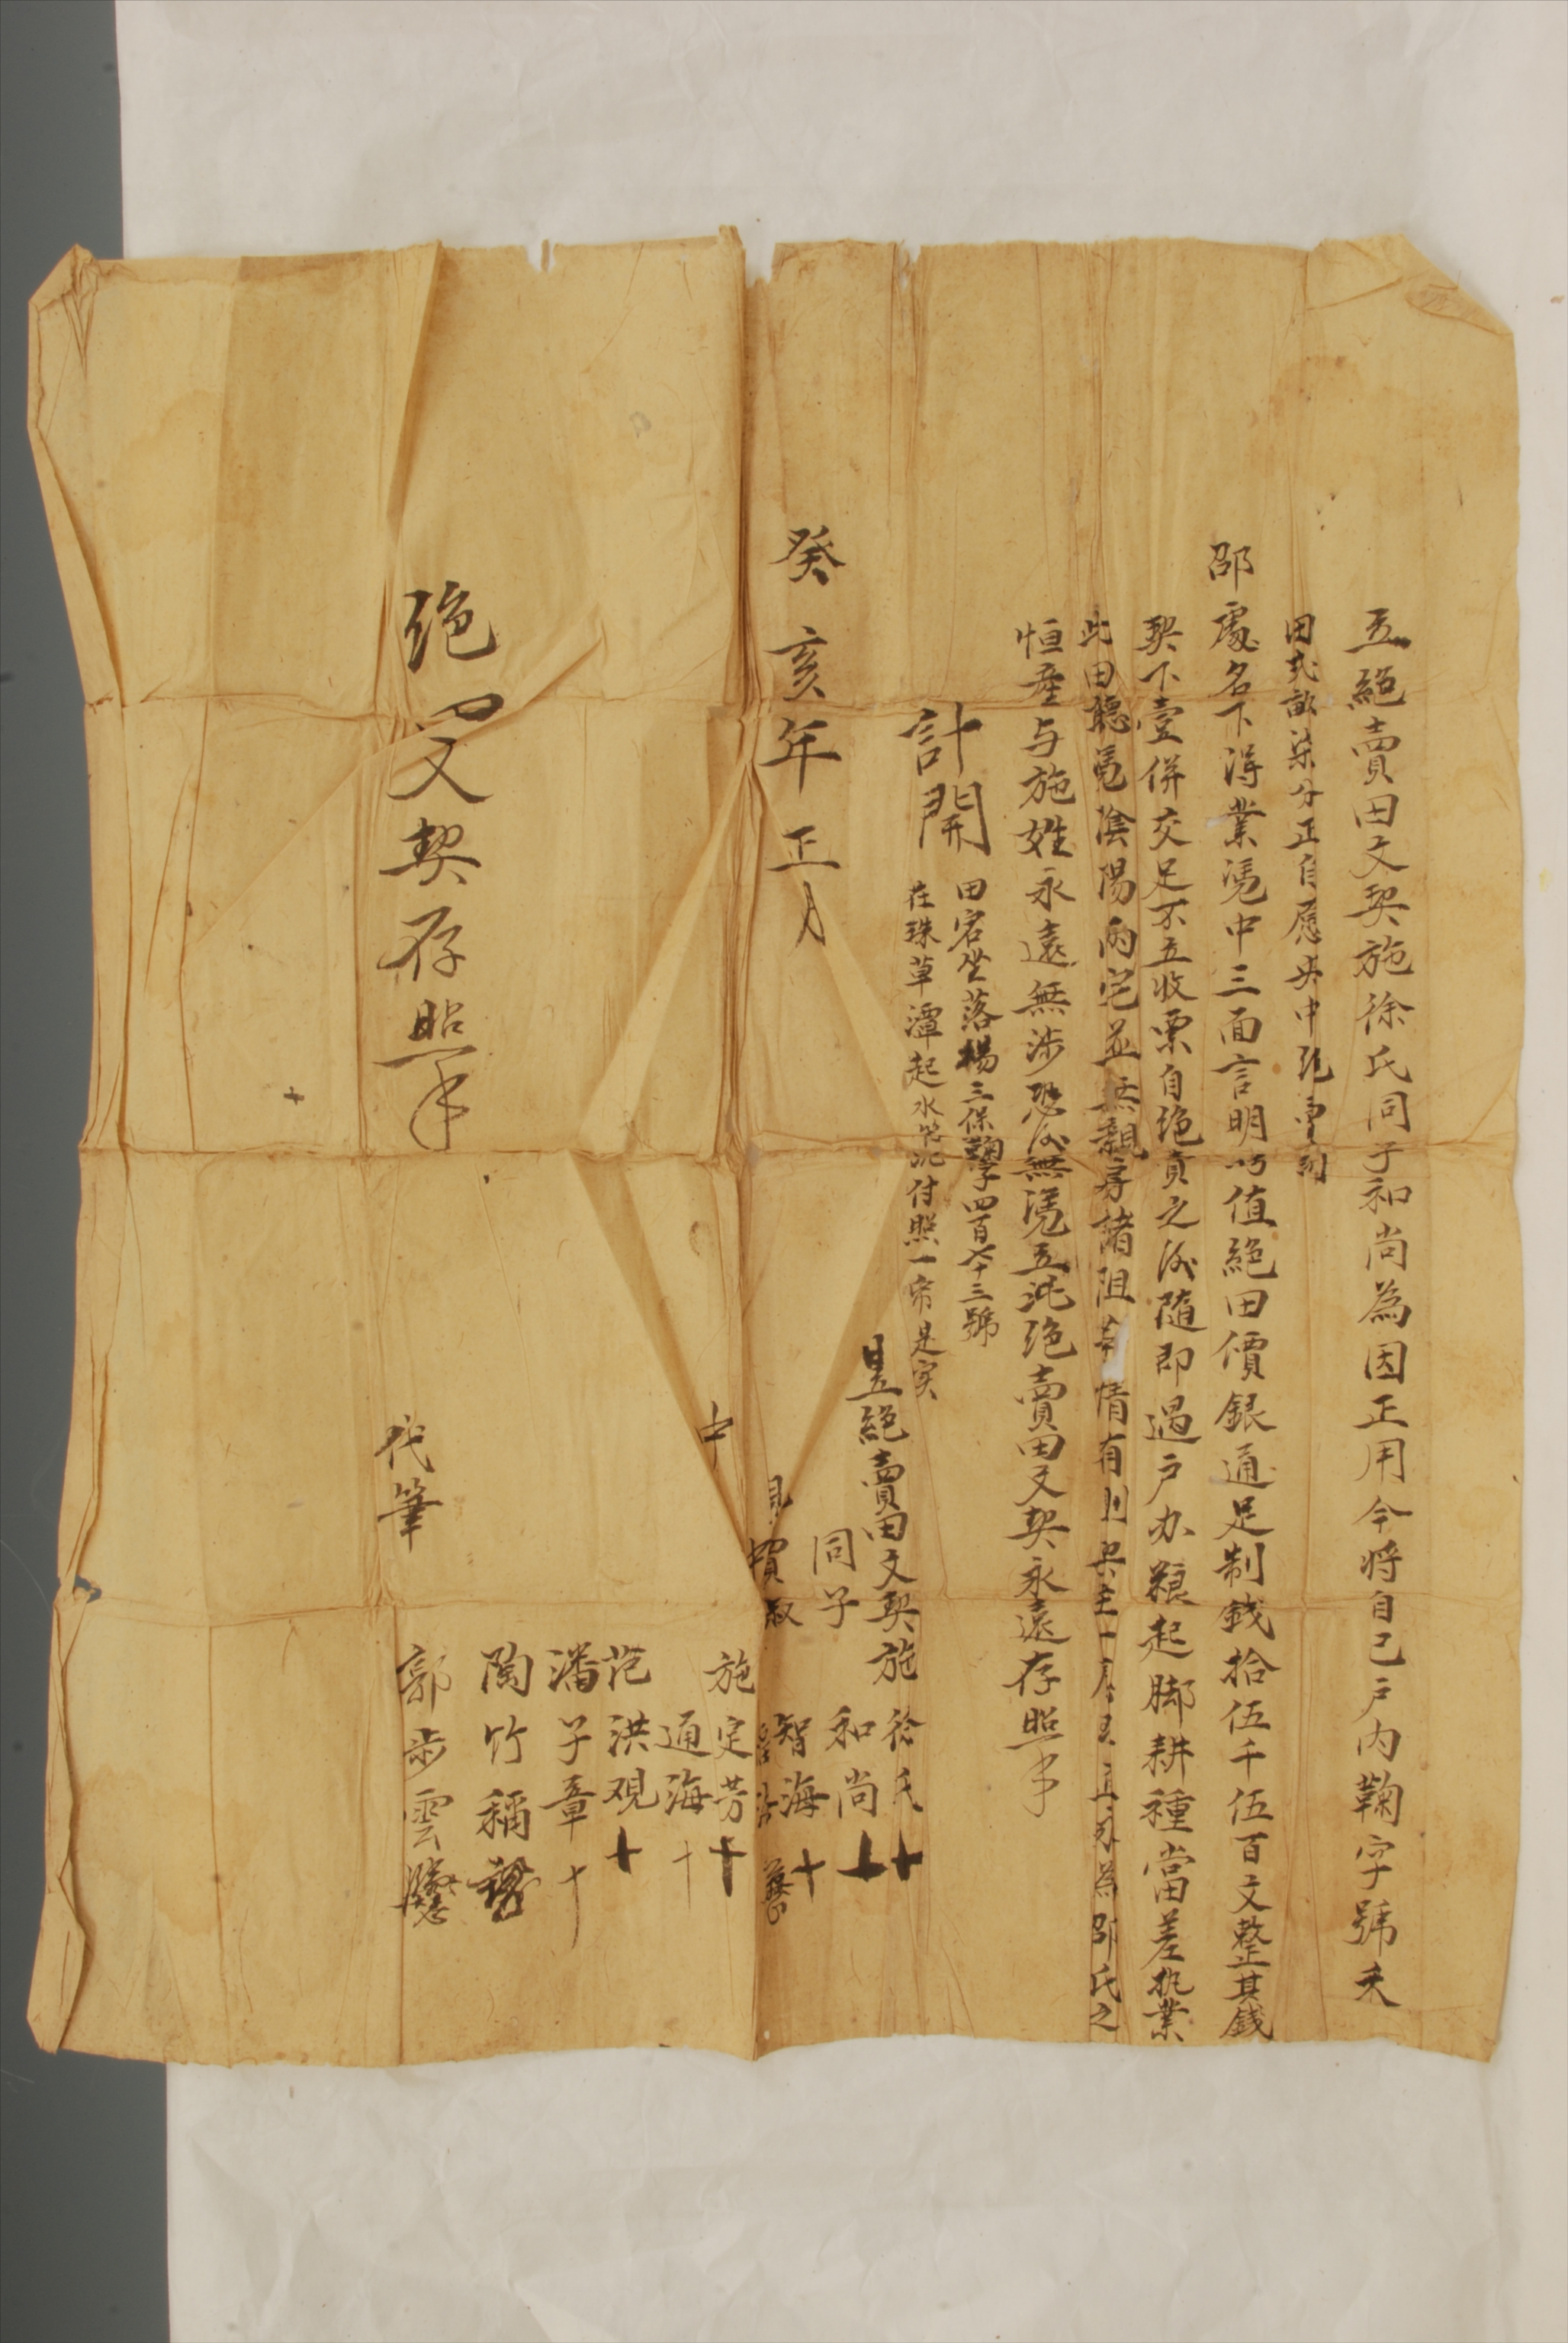 立絕賣田文契施徐氏同子和尚為因正用今將自己戶内鞠字號天
田弍畝柒分正自愿央中絶賣到
邵處名下得業憑中三面言明時值絕田價銀通足制錢拾伍千伍百文整其錢
契下壹併交足不立收票自绝賣之後隨即過户办粮起脚耕種當差执業
此田聽凴陰陽两宅並無親房諸阻等情有出主一
永為邵氏之
恒產与施姓永遠無涉恐後無憑立此绝賣田文契永遠存照
計開
田坐落楊三保鞠字四百六十三號
在珠草潭起水付照一帋是实
癸亥年正月
日立絕賣田文契施徐氏十
同子和尚十
見賣叔智海十
中
施定芳十
通海十
范洪观十
潘子章十
陶竹稱
代筆
郭步雲
绝賣文契存照